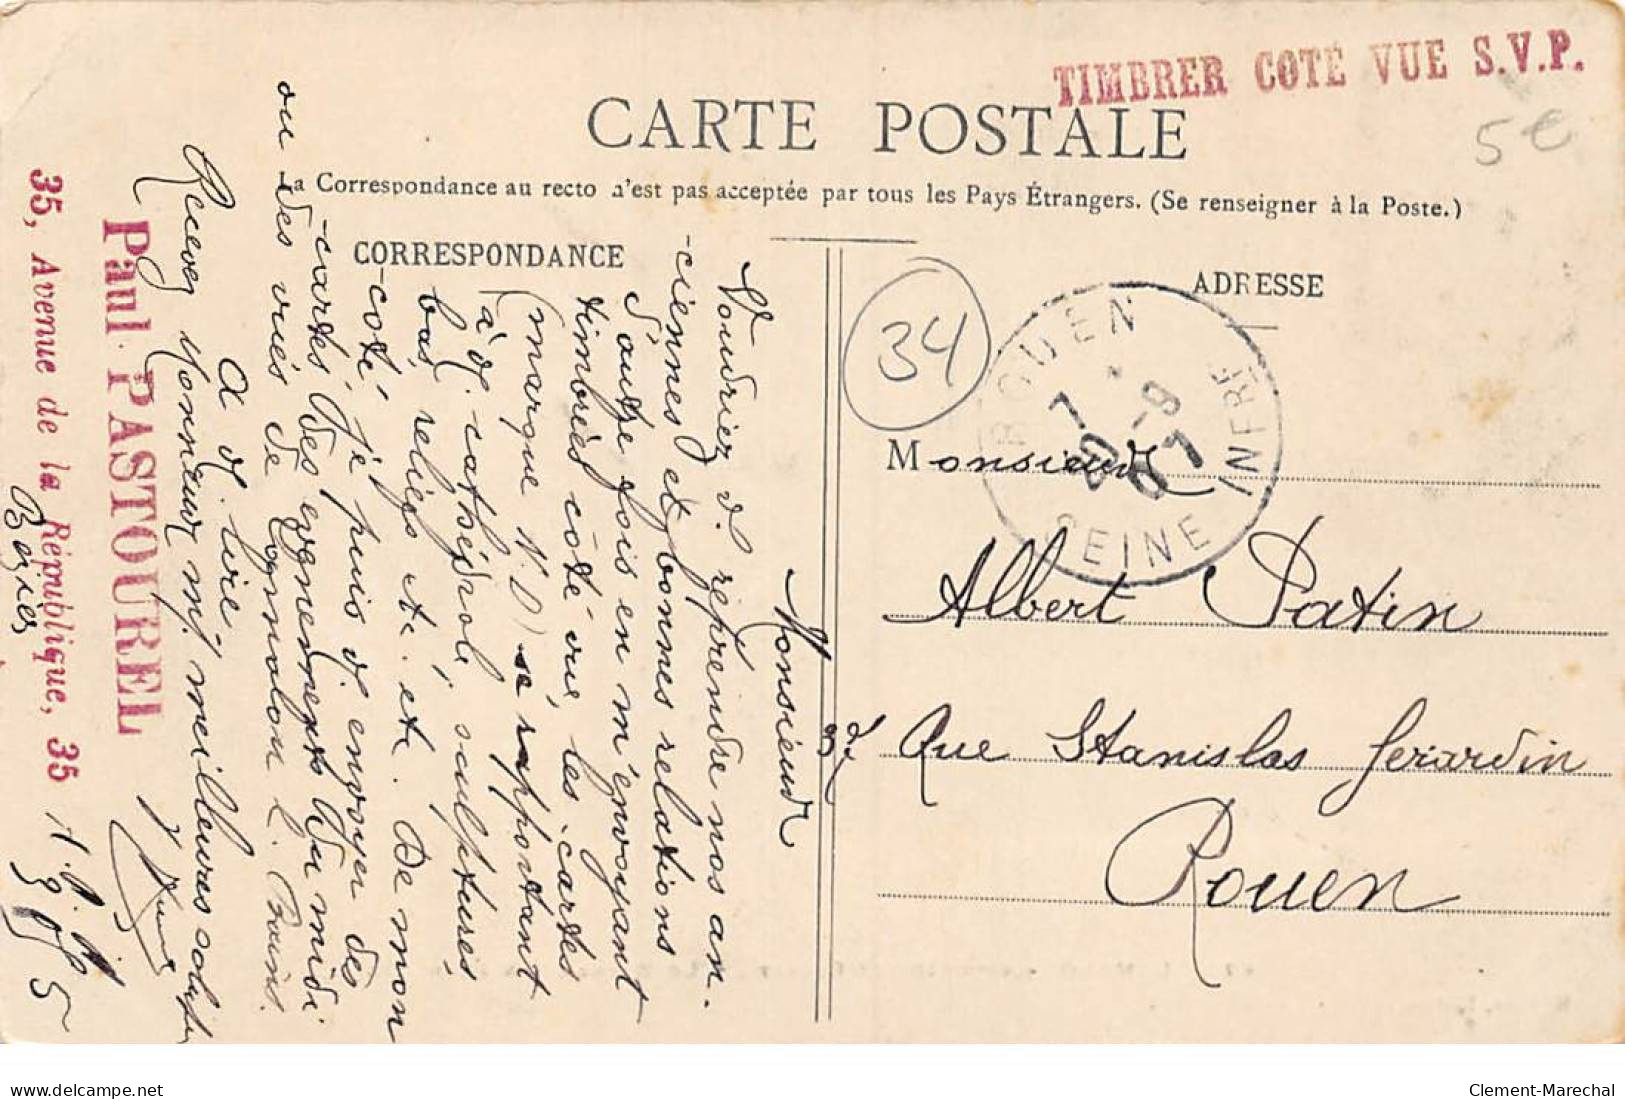 TIMBRER COTÉ VUE S.V.P.
5€
CARTE POSTALE
La Correspondance au recto n'est pas acceptée par tous les Pays Étrangers. (Se renseigner à la Poste.)
CORRESPONDANCE
ADRESSE
34
ROUEN
SEINE INFRE
Monsieur
Albert Patin
37 Rue Stanislas Gerardin
Rouen
Monsieur
Voudriez d. reprendre nos an-
-ciennes et bonnes relations
S'autre fois en m'envoyant
timbrées côté vue, les cartes
(marque N.D) se rapportant
à d. cathédrole, sculptures,
bas reliefs etc. etc. De mon
-coté je puis d. envoyer des
-cartes des evenements du midi
ou des vues de Lamalou l. Bains.
A d. lire
Recevez Monsieur mes meilleures
Paul PASTOUREL
35, Avenue de la République, 35
Beziers
delcampe.net
Clement-Marechal